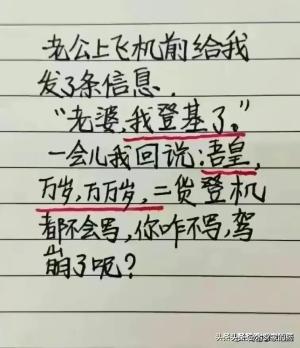 老公上飞机前给我
发了条信息，
“老婆，我登基了。”
一会儿我回说：吾皇，
万岁，万万岁，二货登机
都不会写，你咋不写，驾
崩了呢？